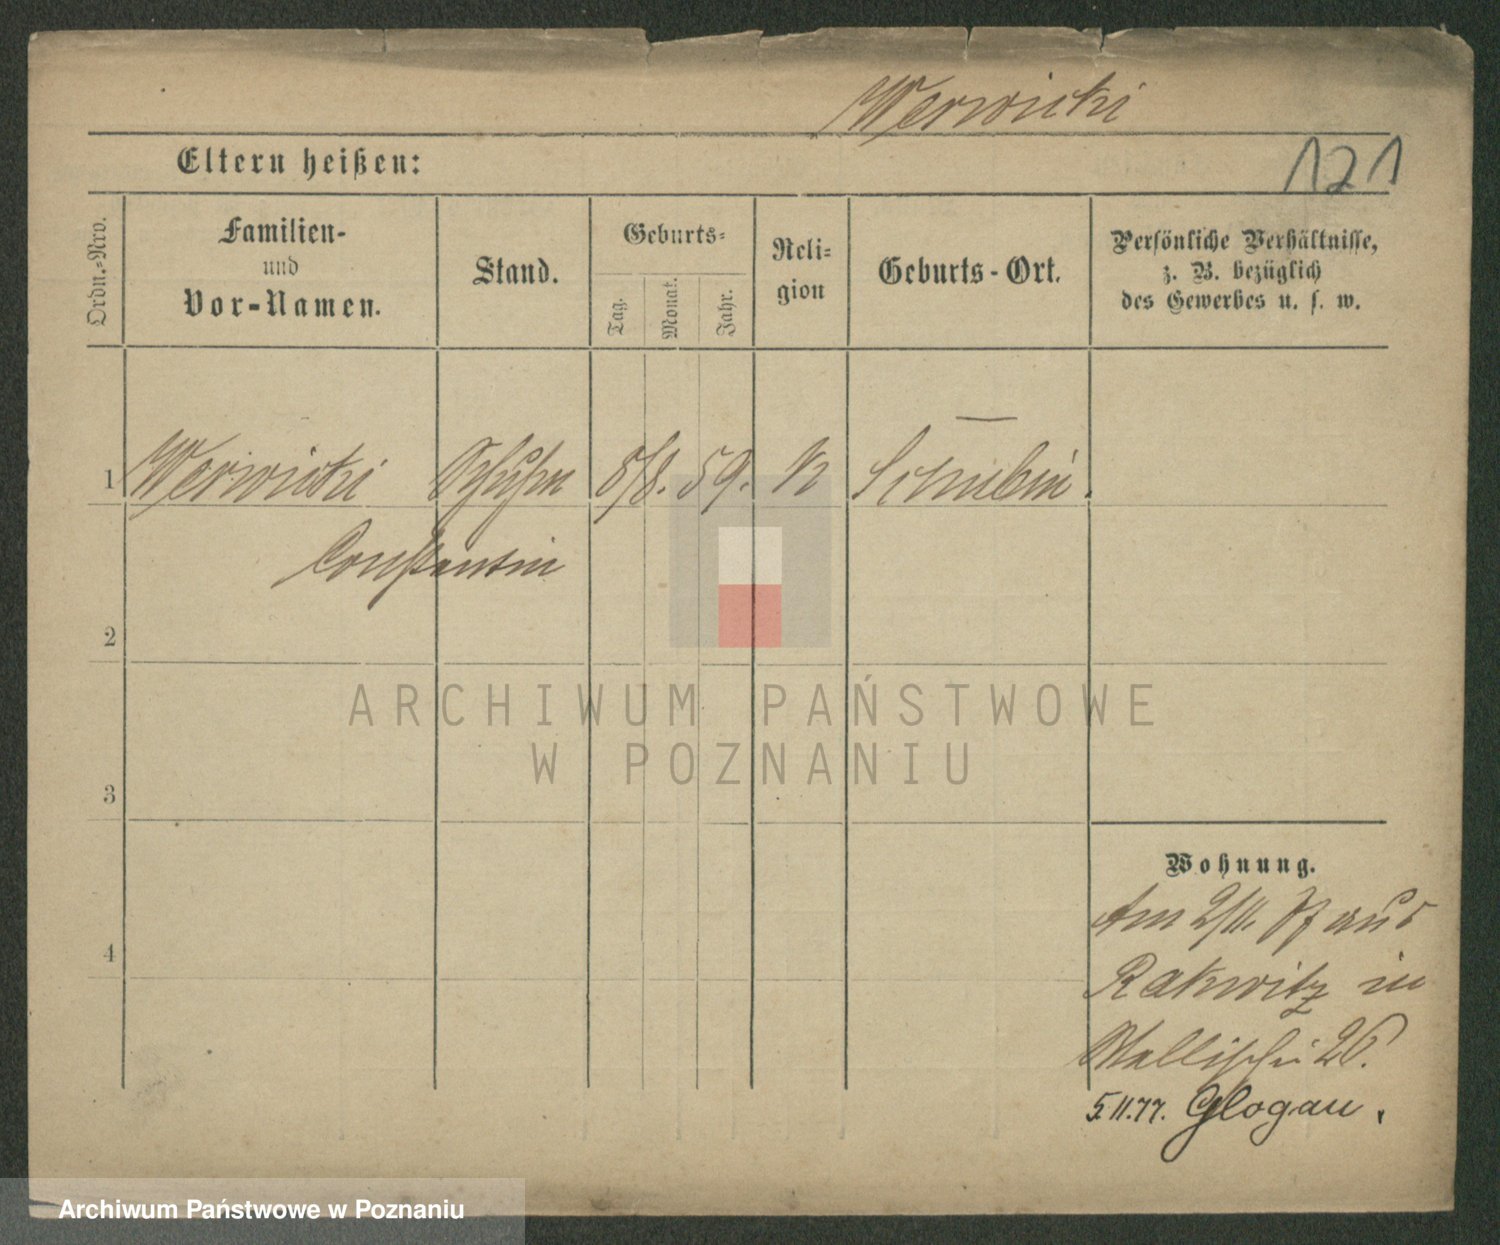 Werwicki
Eltern heißen:
121
Ordn.-Nro.
Familien-
und
Vor-Namen.
Stand.
Geburts-
Tag.
Monat.
Jahr.
Reli-
gion
Geburts-Ort.
Persönliche Verhältnisse,
z. B. bezüglich
des Gewerbes u. s. w.
1 Werwicki 5/8. 59. K Schubin.
Constantin
2
3
4
Wohnung.
Am 2/11. 77 aus
Rakwitz in
Wallischei 26.
5.11.77. Glogau.
ARCHIWUM PAŃSTWOWE
W POZNANIU
Archiwum Państwowe w Poznaniu